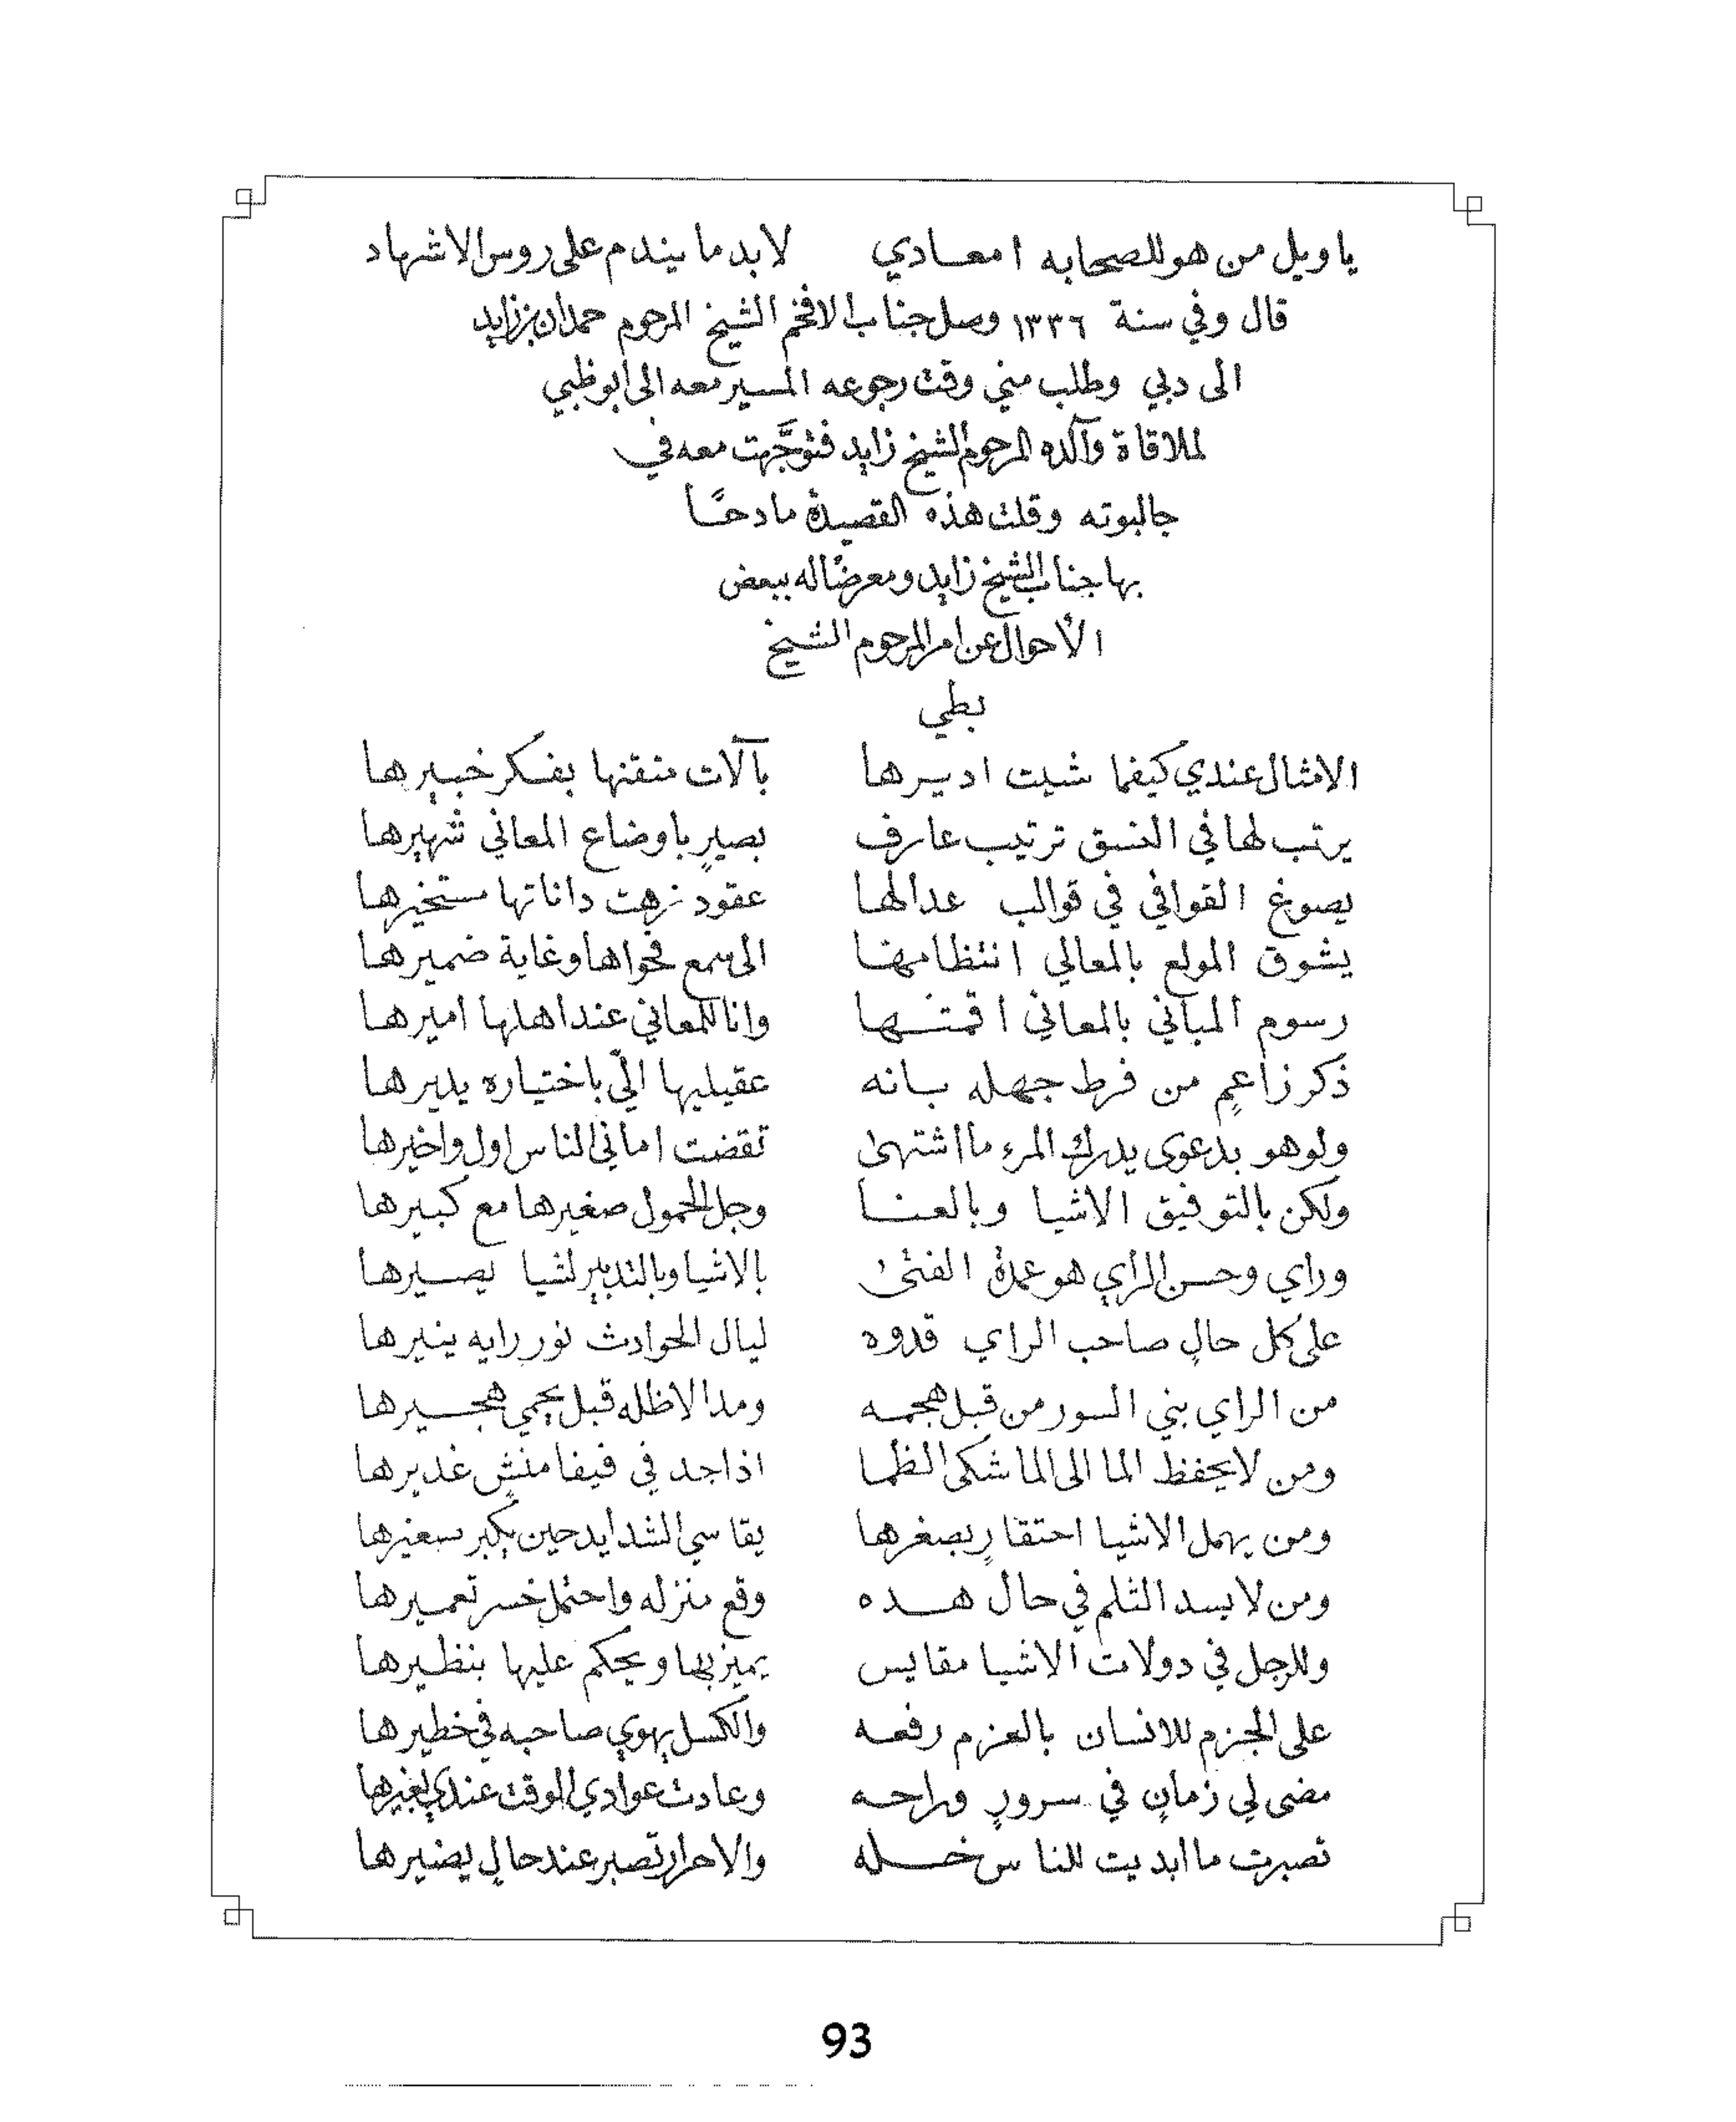 ياويل من هو للصحابه امعادي لابد ما يندم على روس الاشهاد
قال وفي سنة ١٣٣٦ وصل جناب الافخم الشيخ المرحوم حمدان بن زايد
الى دبي وطلب مني وقت رجوعه المسير معه الى ابوظبي
لملاقاة وآلده المرحوم الشيخ زايد فتوجَّهت معه في
جالبوته وقلت هذه القصيدة مادحًا
بها جناب الشيخ زايد ومعرضًا له ببعض
الأحوال عن امر المرحوم الشيخ
بطي
الامثال عندي كيفما شيت اديرها بآلات متقنها بفكر خبيرها
يرتب لها في النسق ترتيب عارف بصيرٍ باوضاع المعاني شهيرها
يصوغ القوافي في قوالب عدالها عقود زهت داناتها مستخيرها
يشوق المولع بالمعالي انتظامها الى سمع فحواها وغاية ضميرها
رسوم المباني بالمعاني اقمتها وانا للمعاني عند اهلها اميرها
ذكر زاعمٍ من فرط جهله بانه عقيليها الّي باختياره يديرها
ولو هو بدعوى يدرك المرء ما اشتهى تقضت اماني الناس اول واخيرها
ولكن بالتوفيق الاشيا وبالعنا وجل الحمول صغيرها مع كبيرها
وراي وحسن الراي هو عمدة الفتى بالاشيا وبالتدبير لشيا يصيرها
على كل حالٍ صاحب الراي قدوه ليال الحوادث نور رايه ينيرها
من الراي بني السور من قبل هجمه ومد الاظله قبل يحمي هجيرها
ومن لا يحفظ الما الى الما شكى الظما اذا جد في فيفا منشٍ غديرها
ومن يهمل الاشيا احتقارٍ بصغرها يقاسي الشدايد حين يكبر سعيرها
ومن لا يسد الثلم في حال هده وقع منزله واحتمل خسر تعميرها
وللرجل في دولات الاشيا مقايس يميز بها ويحكم عليها بنظيرها
على الجزم للانسان بالعزم رفعه والكسل يهوي صاحبه في خطيرها
مضى لي زمانٍ في سرورٍ وراحه وعادت عوادي الوقت عندي بغيرها
تصبرت ما ابديت للناس خله والاحرار تصبر عند حالٍ يضيرها
93